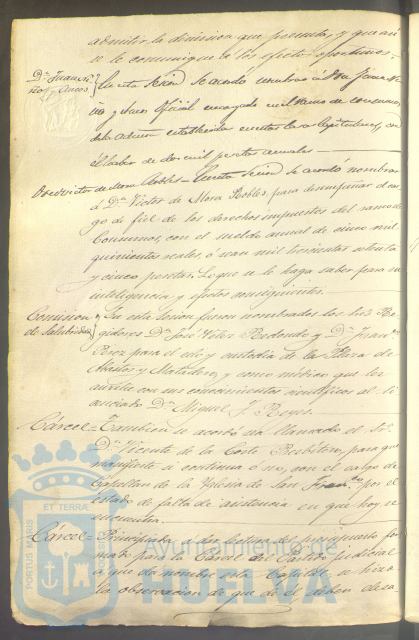 admitir la dimision que presenta, y que así
se le comunique a los efectos oportunos.
Dn. Juan
y Ancos
En esta sesion se acordó nombrar a Don Juan
y Ancos Oficial encargado del Ramo de consumos,
de la establecida en estas Casas Capitulares, con
el haber de dos mil pesetas anuales
Dn. Victor de Mora Robles = En esta sesion se acordó nombrar
a Dn. Victor de Mora Robles, para desempeñar el car-
go de fiel de los derechos impuestos del ramo de
Consumos, con el sueldo anual de cinco mil
quinientos reales, ó sean mil trescientas setenta
y cinco pesetas. Lo que se le haga saber para su
inteligencia y efectos consiguientes.
Comision
de Salubridad
En esta sesion fueron nombrados los tres Re-
gidores Dn. José Velez Redondo y Dn. Juan
Perez para el y custodia de la Plaza de
Abastos y Matadero, y como médico que les
auxilie con sus conocimientos científicos al li-
cenciado Dn. Miguel F. Reyes.
Cárcel = Tambien se acordó sea llamado el Sr.
Dn. Vicente de la Corte Bechiten, para que
manifieste si continua ó no, con el cargo de
Capellan de la Iglesia de San Franco. por el
estado de falta de asistencia en que hoy se
encuentra.
Cárcel = Principiada a dar lectura del presupuesto for-
mado para la Cárcel del Partido Judicial
a que da nombre esta Capital se hizo
la observacion de que de el deben desa-
PORTUS MARIS
ET TERRÆ
CUSTODIA
Ayuntamiento de
HUELVA